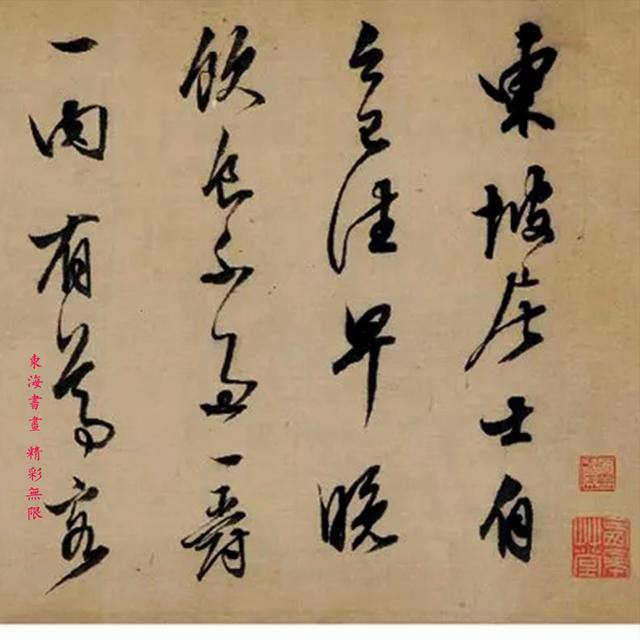 東坡居士自
今已往早晚
飲食不過一爵
一肉有尊客
東海書畫 精彩無限